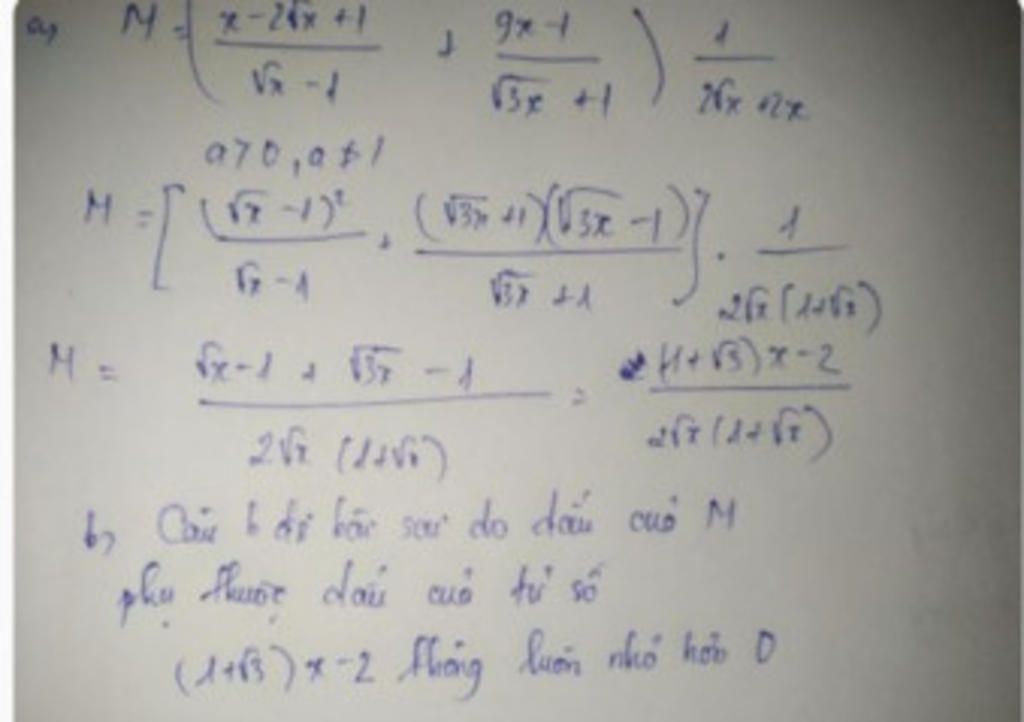 a, M = ( x-2√x+1 / √x -1 + 9x-1 / √3x +1 ) 1 / 2√x +2x
a>0, a≠1
M = [ (√x -1)² / √x -1 + (√3x +1)(√3x -1) / √3x +1 ] . 1 / 2√x (1+√x)
M = √x-1 + √3x -1 / 2√x (1+√x) = (1+√3)x-2 / 2√x (1+√x)
b, Câu b đề bài sai do dấu của M
phụ thuộc dấu của tử số
(1+√3)x-2 không luôn nhỏ hơn 0